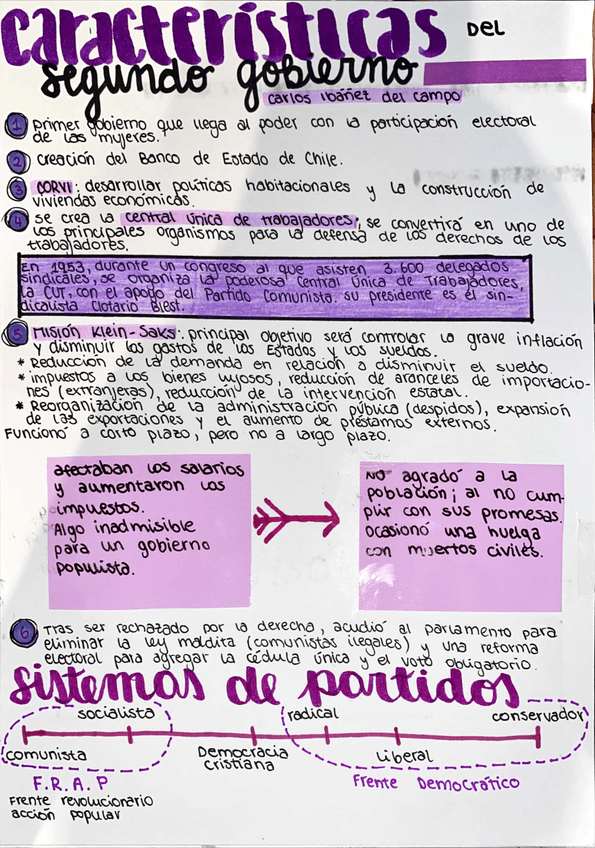 características DEL
segundo gobierno
carlos Ibáñez del campo
1 Primer gobierno que llega al poder con la participación electoral
de las mujeres.
2 creación del Banco de Estado de Chile.
3 CORVI: desarrollar políticas habitacionales y la construcción de
viviendas económicas.
4 se crea la central única de trabajadores; se convertirá en uno de
los principales organismos para la defensa de los derechos de los
trabajadores.
En 1953, durante un congreso al que asisten 3.600 delegados
sindicales, se organiza la poderosa Central Única de Trabajadores,
la CUT, con el apoyo del Partido Comunista. su presidente es el sin-
dicalista Clotario Blest.
5 Misión Klein-Saks: principal objetivo será controlar la grave inflación
y disminuir los gastos de los Estados y los sueldos.
* Reducción de la demanda en relación a disminuir el sueldo.
* impuestos a los bienes lujosos, reducción de aranceles de importacio-
nes (extranjeras), reducción de la intervención estatal.
* Reorganización de la administración pública (despidos), expansión
de las exportaciones y el aumento de préstamos externos.
Funcionó a corto plazo, pero no a largo plazo.
afectaban los salarios
y aumentaron los
impuestos.
Algo inadmisible
para un gobierno
populista.
No agradó a la
población; al no cum-
plir con sus promesas.
ocasionó una huelga
con muertos civiles.
6 Tras ser rechazado por la derecha, acudió al parlamento para
eliminar la ley maldita (comunistas ilegales) y una reforma
electoral para agregar la cédula única y el voto obligatorio.
sistemas de partidos
socialista radical conservador
comunista Democracia cristiana liberal
F.R.A.P Frente Democrático
Frente revolucionario
acción popular